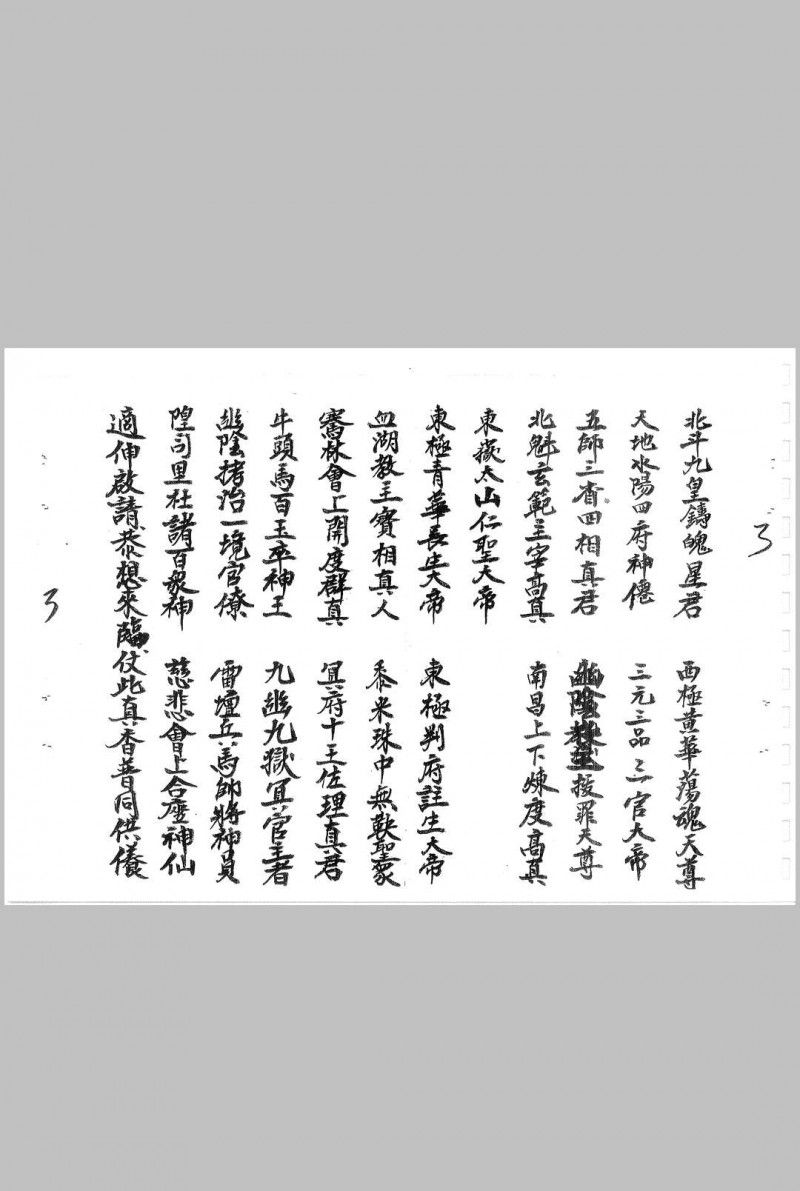 3
北斗九皇鑄魄星君 西極黃華蕩魂天尊
天地水陽四府神僊 三元三品三官大帝
五師三省四相真君 拔罪天尊
北魁玄範主宰高真 南昌上下煉度高真
東嶽太山仁聖大帝
東極青華長生大帝 東極判府註生大帝
血湖教主寶相真人 黍米珠中無鞅聖衆
騫林會上開度群真 冥府十王佐理真君
牛頭馬百王卒神王 九幽九獄冥官主者
幽陰拷治一境官僚 雷壇兵馬帥將神員
隍司里社諸百衆神 慈悲會上合座神仙
適伸啟請恭想來臨仗此真香普同供養
3